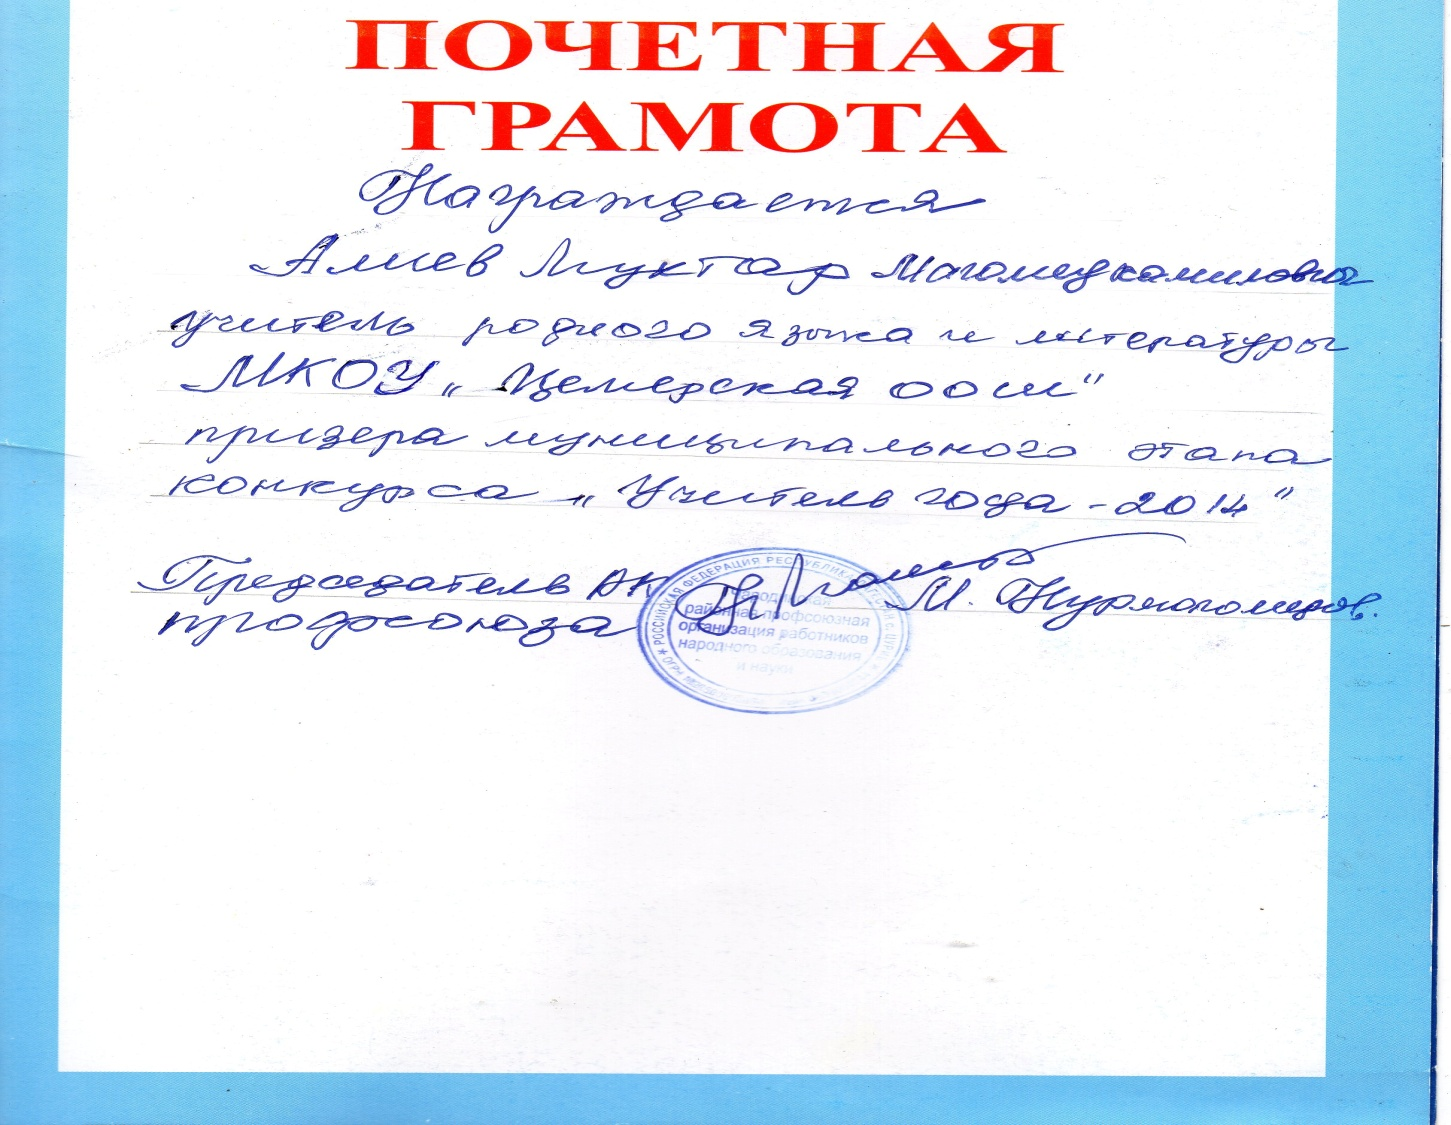 ПОЧЕТНАЯ
ГРАМОТА
Награждается
Алиев Муктар Магомедкамилович
учитель родного языка и литературы
МКОУ „Цемерская ООШ"
призера муниципального этапа
конкурса „Учитель года - 2014"
Председатель РК М. Нурмагомедов.
профсоюза
РОССИЙСКАЯ ФЕДЕРАЦИЯ РЕСПУБЛИКА
районная профсоюзная
организация работников
народного образования
и науки